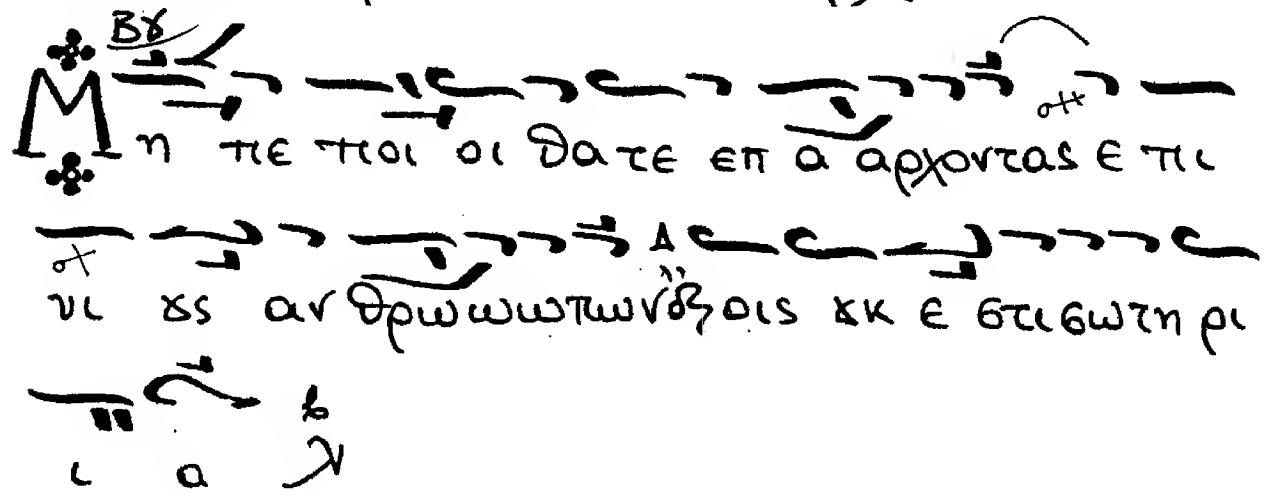 Βȣ
Μη πε ποι οι θα τε επ α αρχοντας ε πι
υι ȣς αν θρωωωπων οις ȣκ ε στισωτη ρι
ι α